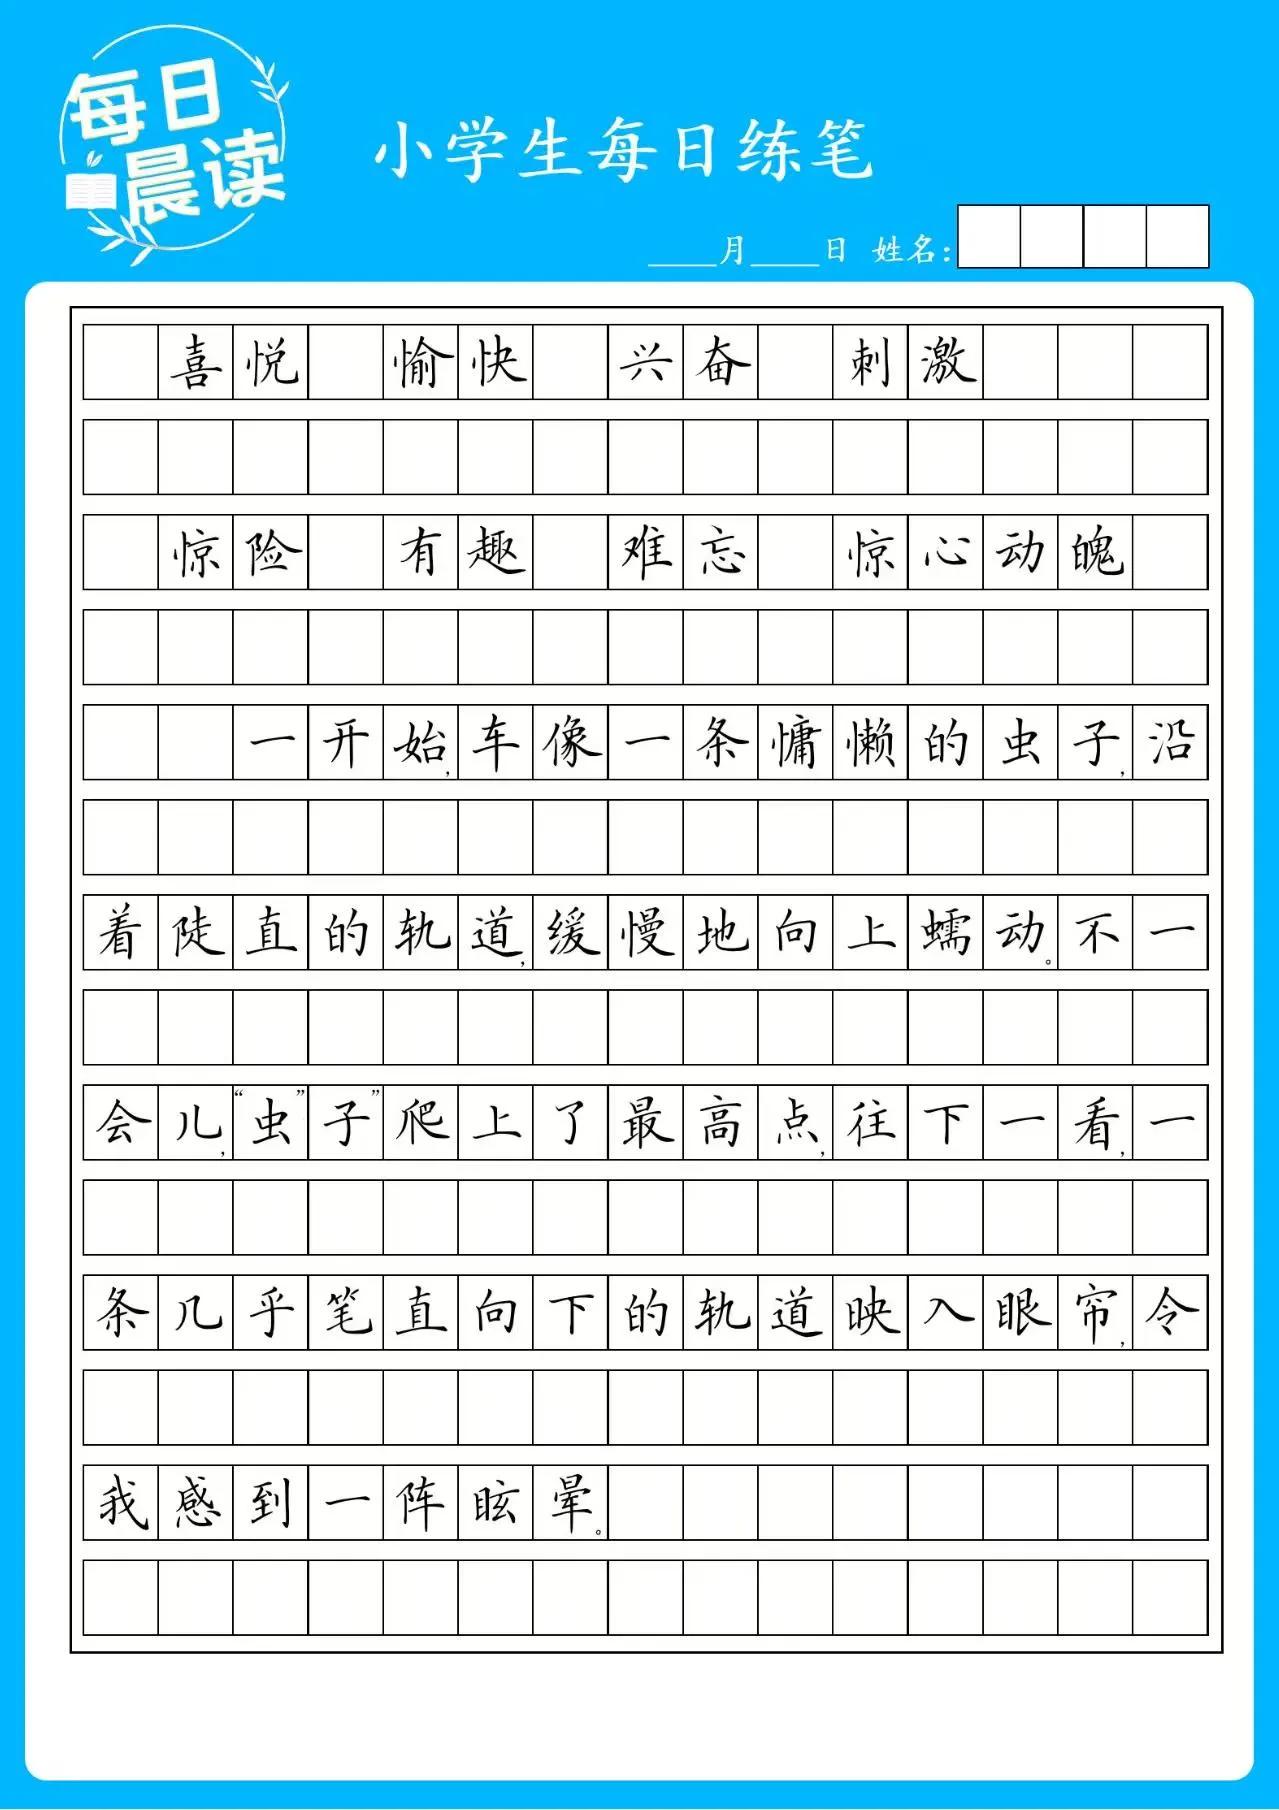 每日
晨读
小学生每日练笔
____月____日 姓名:
喜悦 愉快 兴奋 刺激
惊险 有趣 难忘 惊心动魄
一开始,车像一条慵懒的虫子,沿
着陡直的轨道,缓慢地向上蠕动。不一
会儿,“虫”子”爬上了最高点,往下一看,一
条几乎笔直向下的轨道映入眼帘,令
我感到一阵眩晕。